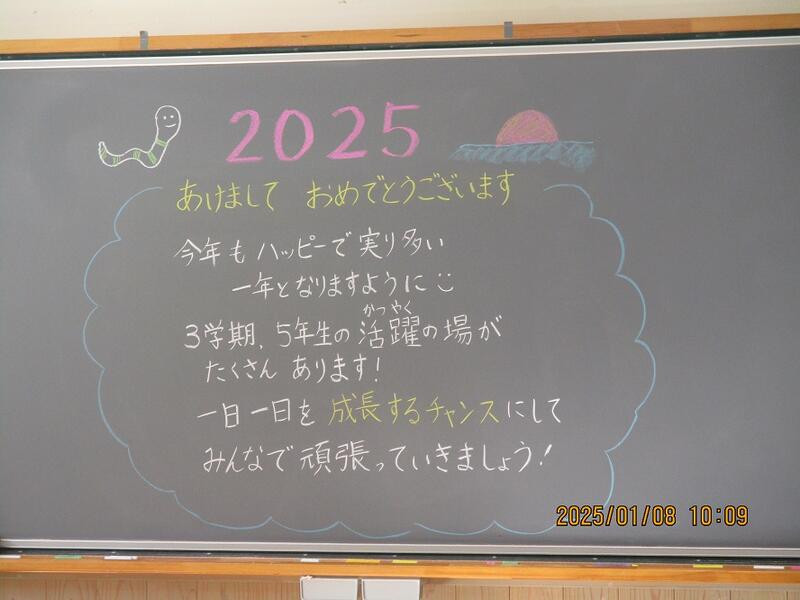 2025
あけまして おめでとうございます
今年も ハッピーで 実り多い
一年となりますように
かつやく
3学期、5年生の 活躍の場が
たくさん あります!
一日一日を 成長するチャンスにして
みんなで 頑張っていきましょう!
2025/01/08 10:09